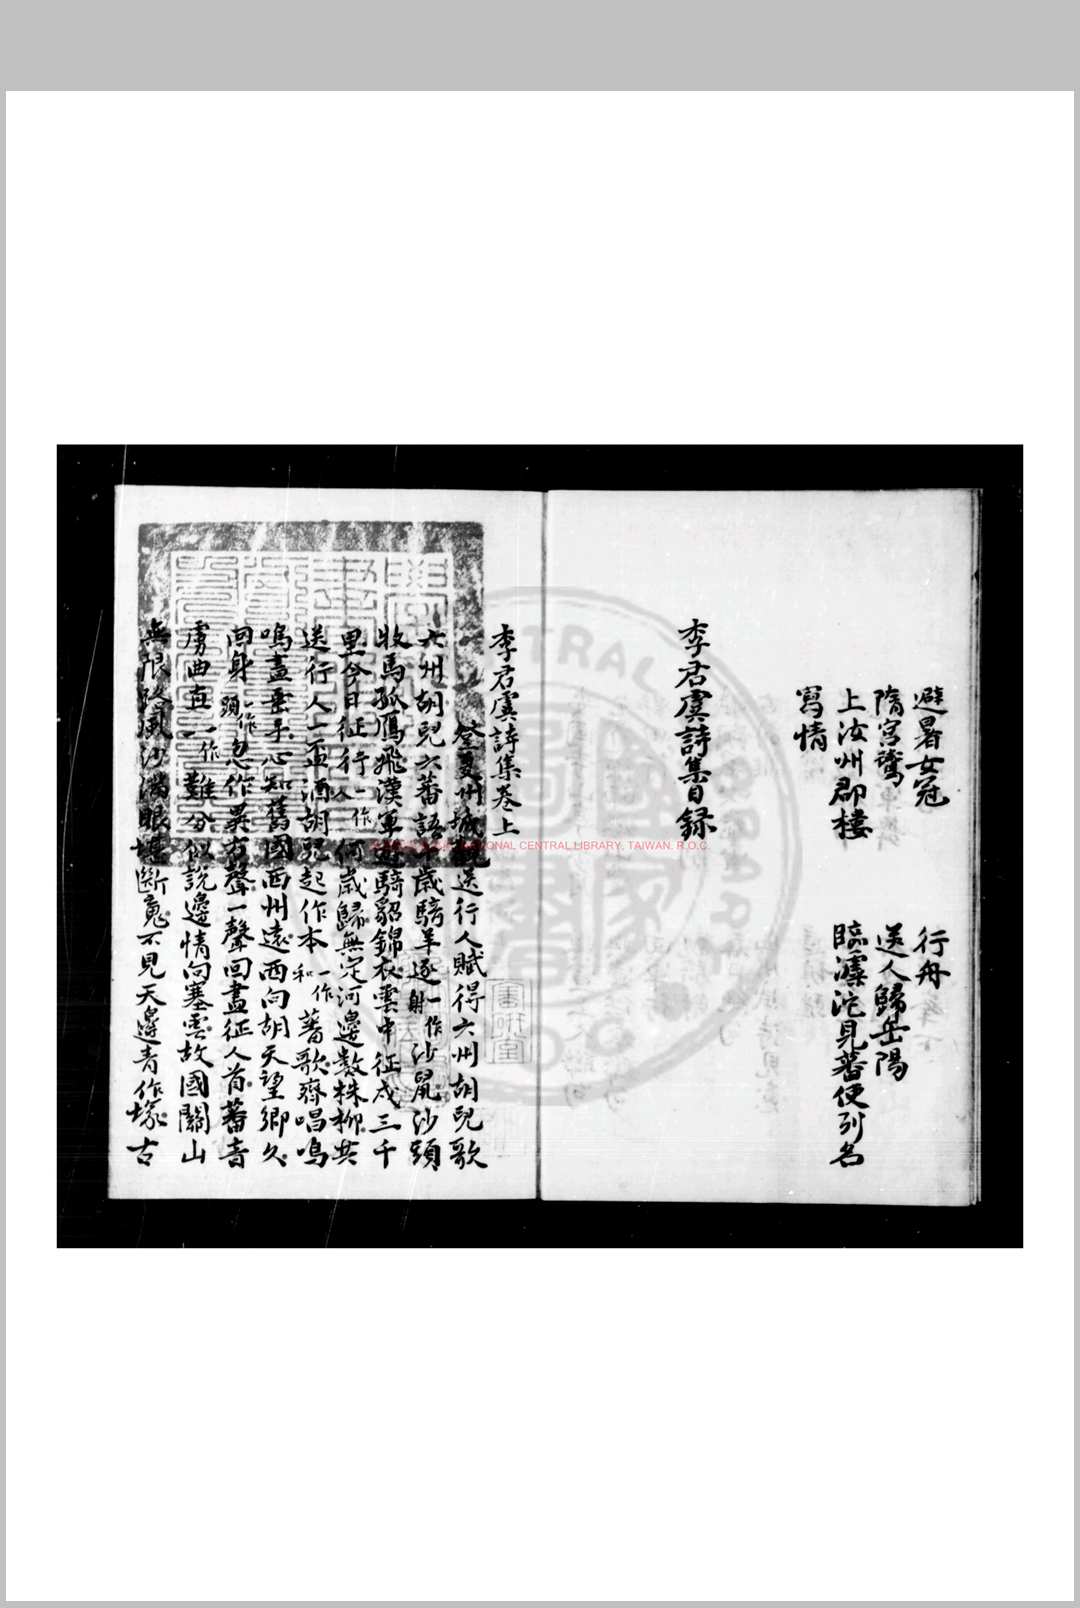 避暑女冠　行舟
隋宮燕　送人歸岳陽
上汝州郡樓　臨滹沱見蕃使列名
寫情
李君虞詩集目錄
李君虞詩集卷上
登夏州城觀送行人賦得六州胡兒歌
六州胡兒六蕃語十歲騎羊逐一作射沙鼠沙頭
牧馬孤鴈飛漢軍遊騎貂錦衣雲中征戍三千
里今日征行一作人何歲歸無定河邊數株柳共
送行人一盃酒胡兒起作本一作和蕃歌齊唱嗚
嗚盡垂手心知舊國西州遠西向胡天望鄉久
回身一作頭忽作異方聲一聲回盡征人首蕃音
虜曲一作難分似說邊情向塞雲故國關山
無限路風沙滿眼堪斷魂不見天邊青作塚古
NATIONAL CENTRAL LIBRARY, TAIWAN, R.O.C.